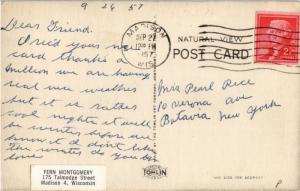 9 26 57
Dear Friend.
I rec'd your nice
card thanks a
million we are having
real nice weather
but it is rather
cool nights it will
be winter before we
know it I do not like
the winters do you
love
FERN MONTGOMERY
175 Talmadge Street
Madison 4, Wisconsin
MADISON
SEP 27
12 PM
1957
WIS.
NATURAL VIEW
POST CARD
2¢
Mrs Pearl Rice
10 Verona ave
Batavia New York
TOMLIN
P